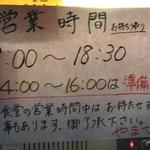 営業時間 お持ち帰り
:00〜18:30
4:00〜16:00は準備
食堂の営業時間中はお待たせす
事もあります。御了承下さい。
やませ